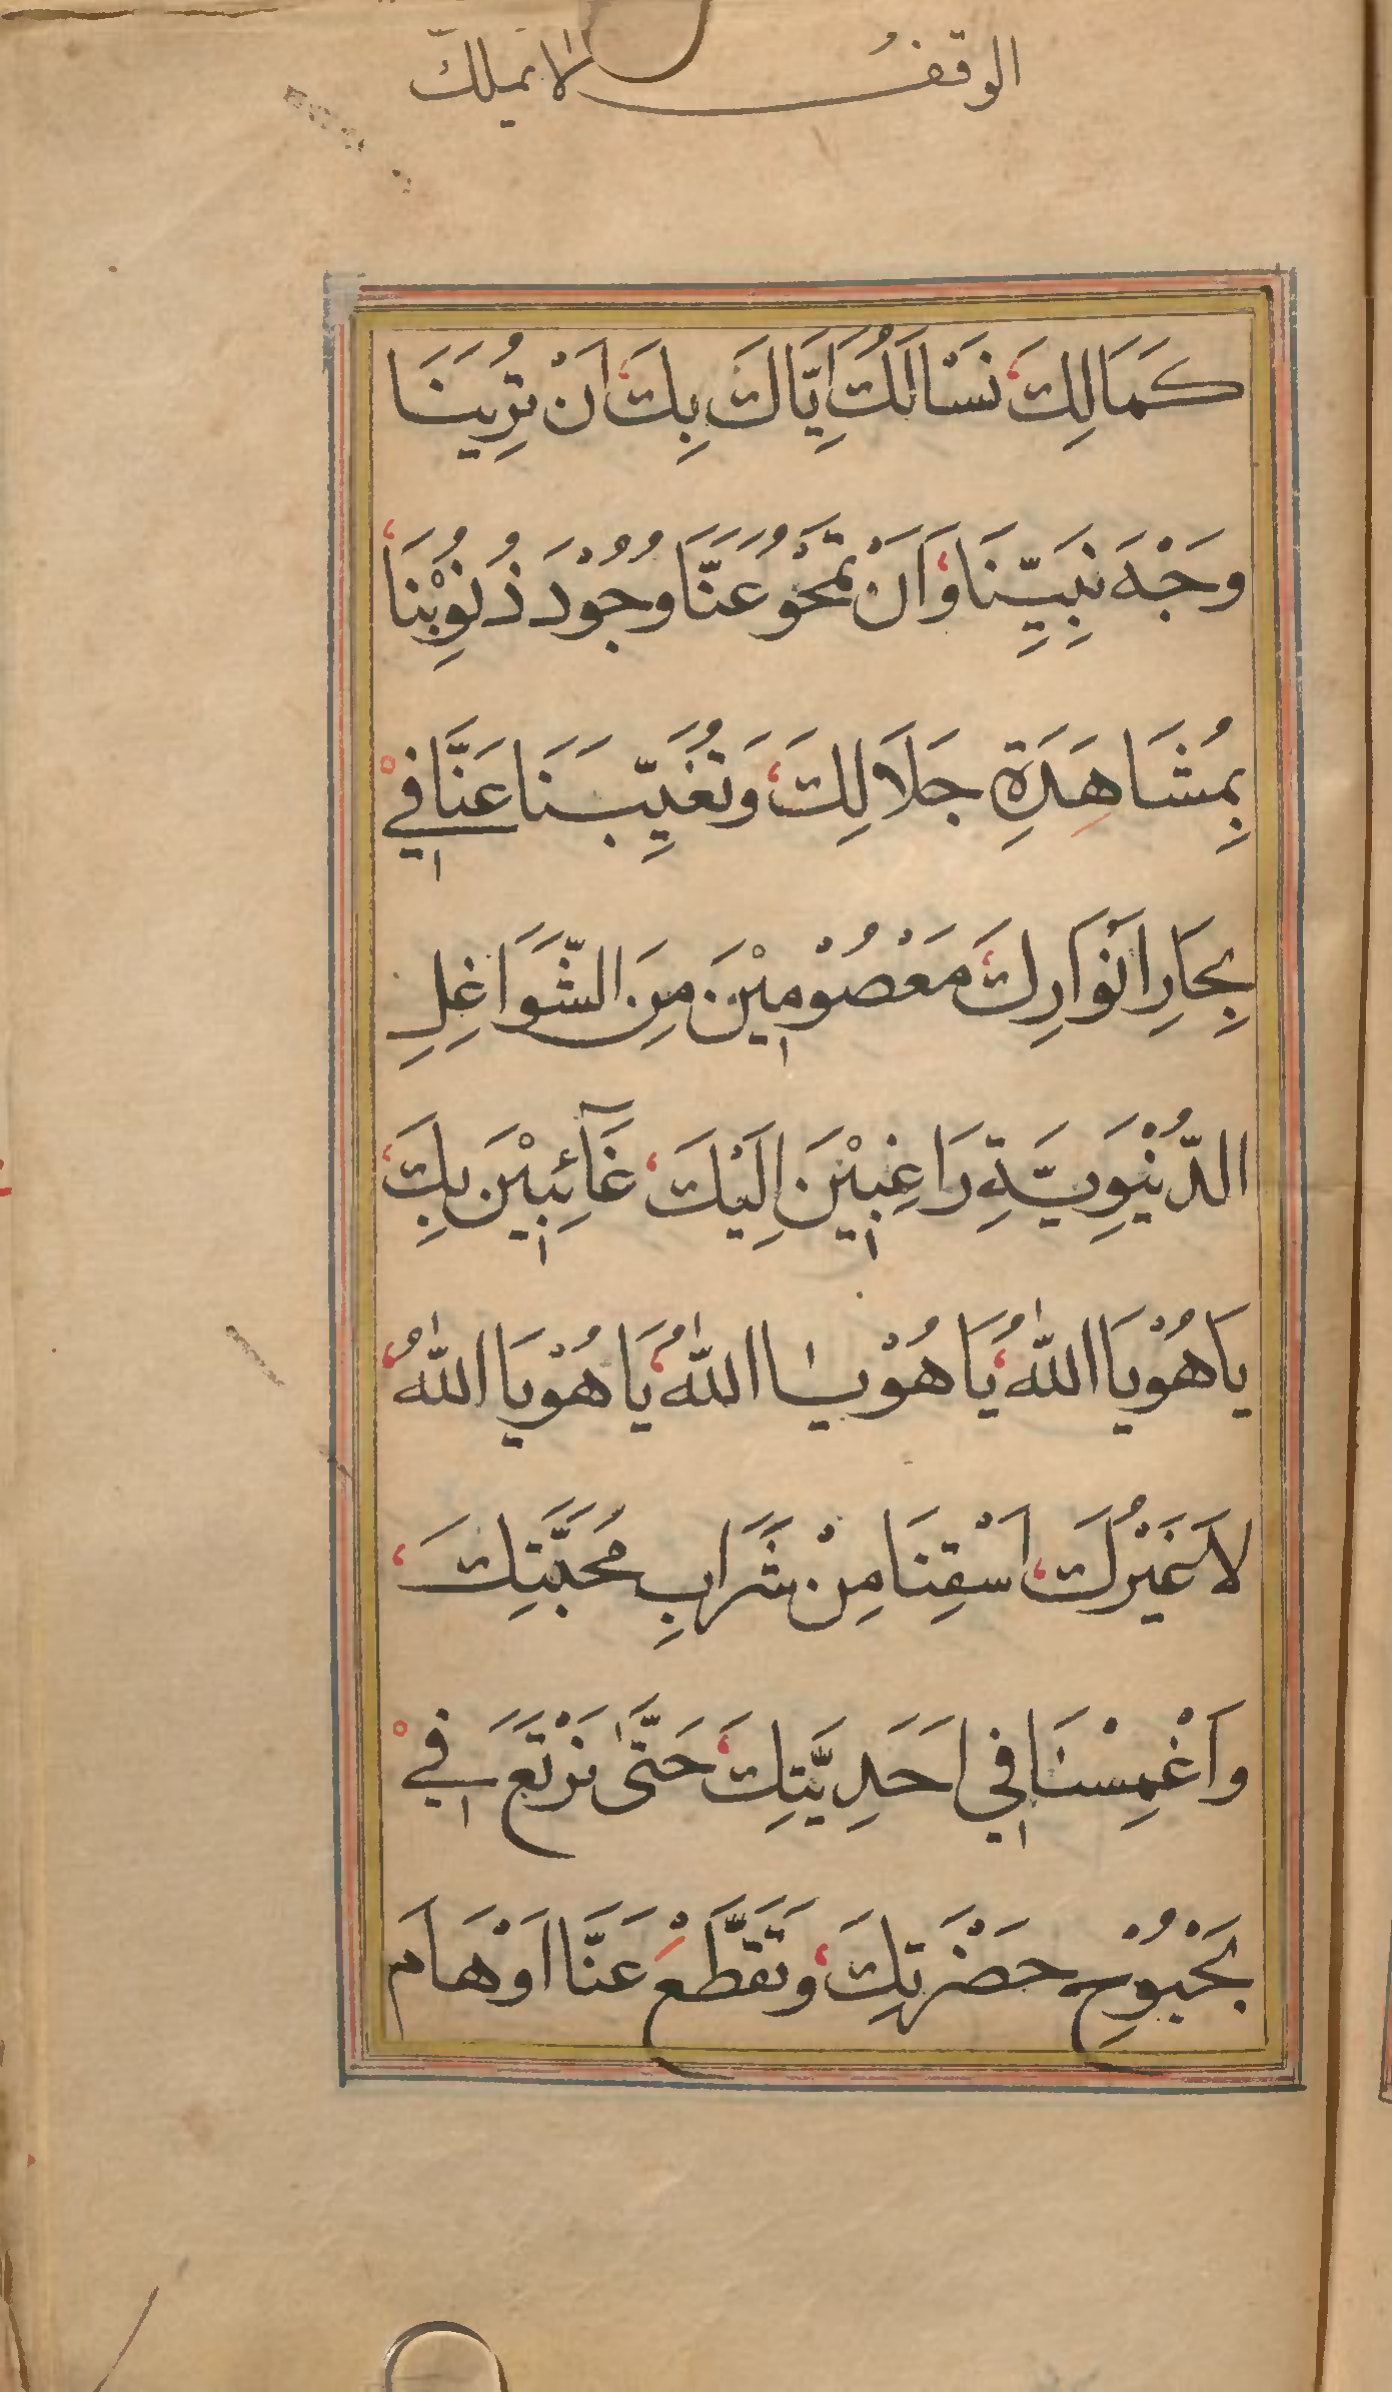 الوقف لا يملك
كَمَالِكَ نَسْاَلُكَ اِيَّاكَ بِكَ اَنْ تُرِيَنَا
وَجْهَ نَبِيِّنَا وَاَنْ تَمْحُوَ عَنَّا وُجُوْدَ ذُنُوْبِنَا
بِمُشَاهَدَةِ جَلَالِكَ وَتُغَيِّبَنَا عَنَّا فِيْ
بِحَارِ اَنْوَارِكَ مَعْصُوْمِيْنَ مِنَ الشَّوَاغِلِ
الدُّنْيَوِيَّةِ رَاغِبِيْنَ اِلَيْكَ غَآئِبِيْنَ بِكَ
يَا هُوْ يَا اَللّٰهُ يَا هُوْ يَا اَللّٰهُ يَا هُوْ يَا اَللّٰهُ
لَا غَيْرُكَ اَسْقِنَا مِنْ شَرَابِ مَحَبَّتِكَ
وَاَغْمِسْنَا فِي اَحَدِيَّتِكَ حَتّٰى نَرْتَعَ فِيْ
بَحْبُوْحِ حَضْرَتِكَ وَتَقَطَّعْ عَنَّا اَوْهَامَ